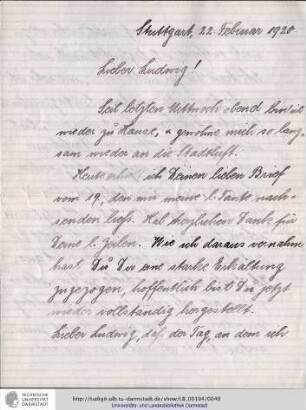 Stuttgart, 22. Februar 1920
Lieber Ludwig!
Seit letzten Mittwoch abend bin ich
wieder zu Hause, u. gewöhne mich so lang-
sam wieder an die Stadtluft.
Heute ich Deinen lieben Brief
vom 19., den mir meine l. Tante nach-
senden ließ. Hab herzlichen Dank für
Deine l. Zeilen. Wie ich daraus vernahm
hast Du Dir eine starke Erkältung
zugezogen, hoffentlich bist Du jetzt
wieder vollständig hergestellt.
Lieber Ludwig, daß der Tag, an dem ich
TECHNISCHE
UNIVERSITÄT
DARMSTADT
Universitäts- und Landesbibliothek Darmstadt